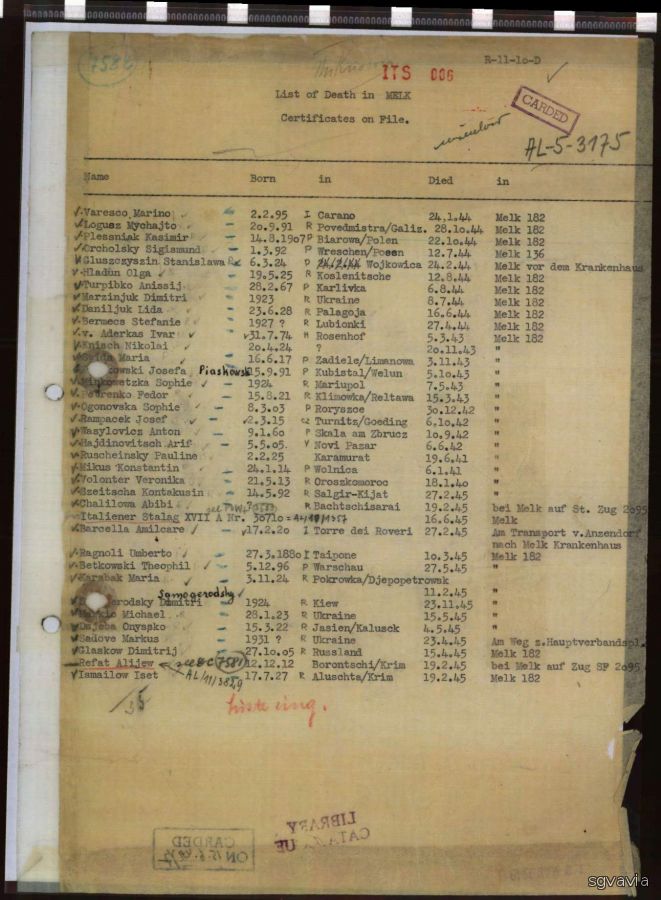 7583
R-11-10-D
ITS 006
List of Death in MELK
Certificates on File.
CARDED
AL-5-3175
Name Born in Died in
Varesco Marino 2.2.95 I Carano 24.1.44 Melk 182
Logusz Mychajto 20.9.91 R Povedmistra/Galiz. 28.10.44 Melk 182
Plessniak Kasimir 14.8.1907 P Biarowa/Polen 22.10.44 Melk 182
Orcholsky Sigismund 1.3.92 P Wreschen/Posen 12.7.44 Melk 136
Gluszczyszin Stanislawa R 6.3.24 P Wojkowica 24.2.44 Melk vor dem Krankenhaus
Hladun Olga 19.5.25 R Koslenitsche 12.8.44 Melk 182
Turpibko Anissij 28.2.67 P Karlivka 6.8.44 Melk 182
Marzinjuk Dimitri 1923 R Ukraine 8.7.44 Melk 182
Daniljuk Lida 23.6.28 R Palagoja 16.6.44 Melk 182
Bermecs Stefanie 1927 ? R Lubionki 27.4.44 Melk 182
v. Aderkas Ivar 31.7.74 H Rosenhof 5.3.43 Melk 182
Knisch Nikolai 20.4.24 ? 20.11.43 "
Maria 16.6.17 P Zadiele/Limanowa 3.11.43 "
kowski Josefa Piaskowski 15.9.91 P Kubistal/Welun 5.10.43 "
Minkowetzka Sophie 1924 R Mariupol 7.5.43 "
Fedor 15.8.21 R Klimowka/Reltawa 15.3.43 "
Ogonovska Sophie 8.3.03 P Roryszce 30.12.42 "
Rampacek Josef 2.3.15 cz Turnitz/Goeding 6.10.42 "
Wasylovicz Anton 9.1.60 P Skala am Zbrucz 10.9.42 "
Hajdinovitsch Arif 5.5.05. Y Novi Pazar 6.6.42 "
Ruscheinsky Pauline 2.2.25 Karamurat 19.6.41 "
Mikus Konstantin 24.1.14 P Wolnica 6.1.41 "
Volonter Veronika 21.5.13 R Oroszkomoroz 18.1.40 "
Szeitscha Kontakusin 14.5.92 R Salgir-Kijat 27.2.45 "
Chalilowa Abibi R Bachtschisarai 19.2.45 bei Melk auf St. Zug 2095
Italiener Stalag XVII A Nr. 30710 16.6.45 Melk
Barcella Amilcare 17.2.20 I Torre dei Roveri 27.2.45 Am Transport v.Anzendorf
nach Melk Krankenhaus
Ragnoli Umberto 27.3.1880 I Taipone 10.3.45 Melk 182
Betkowski Theophil 5.12.96 P Warschau 27.5.45 "
Karabak Maria 3.11.24 R Pokrowka/Djepopetrowsk
11.2.45 "
Samogorodsky
erodsky Dumitri 1924 R Kiew 23.11.45 "
Michael 28.1.23 R Ukraine 15.5.45 "
Dajeba Onyspko 15.3.22 R Jasien/Kalusck 4.5.45 "
Sadove Markus 1931 ? R Ukraine 23.4.45 Am Weg z.Hauptverbandspl.
Glaskow Dimitrij 27.10.05 R Russland 15.4.45 Melk 182
Refat Alijew see DC 7581 12.12.12 Borontschi/Krim 19.2.45 bei Melk auf Zug SF 2095
AL/11/3849
Ismailow Iset 17.7.27 R Aluschta/Krim 19.2.45 Melk 182
35
Liste eing.
LIBRARY
CARDED
ON 15.6.
sgvavia